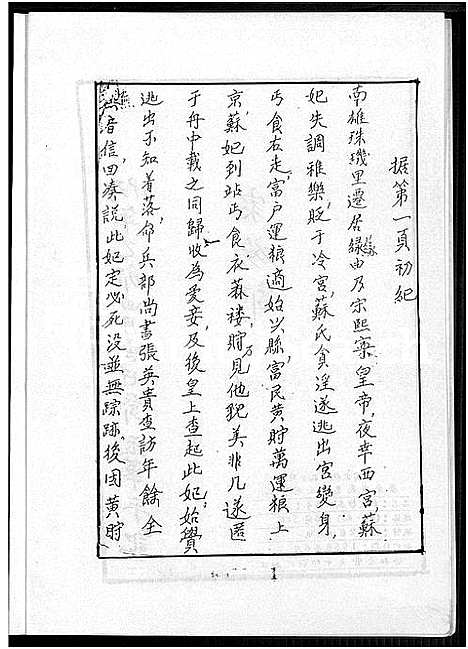 据第一頁初紀
南雄珠璣里遷居緣由乃宋熙寧皇帝,夜幸西宮,蘇
妃失調雅樂,貶于冷宮,蘇氏貪淫遂逃出宮變身,
丐食右走,富户運粮適始兴縣,富民黄貯萬運粮上
京,蘇妃到站丐食,衣蔴褛,貯万見他貌美非凡遂匿
于舟中載之同歸收為愛妾,及後皇上查起此妃,始覺
逃出不知着落,命兵部尚書張英貴查訪年餘全
無音信回凑説,此妃定必死没並無踪跡,後因黄貯
1